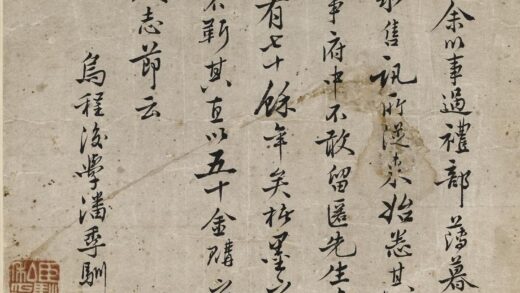 余以事過禮部薄暮
求售訊所從來始悉其
事府中不敢留匿先生
有七十餘年矣楮墨
不靳其直以五十金購之
志節云
烏程後學潘季馴